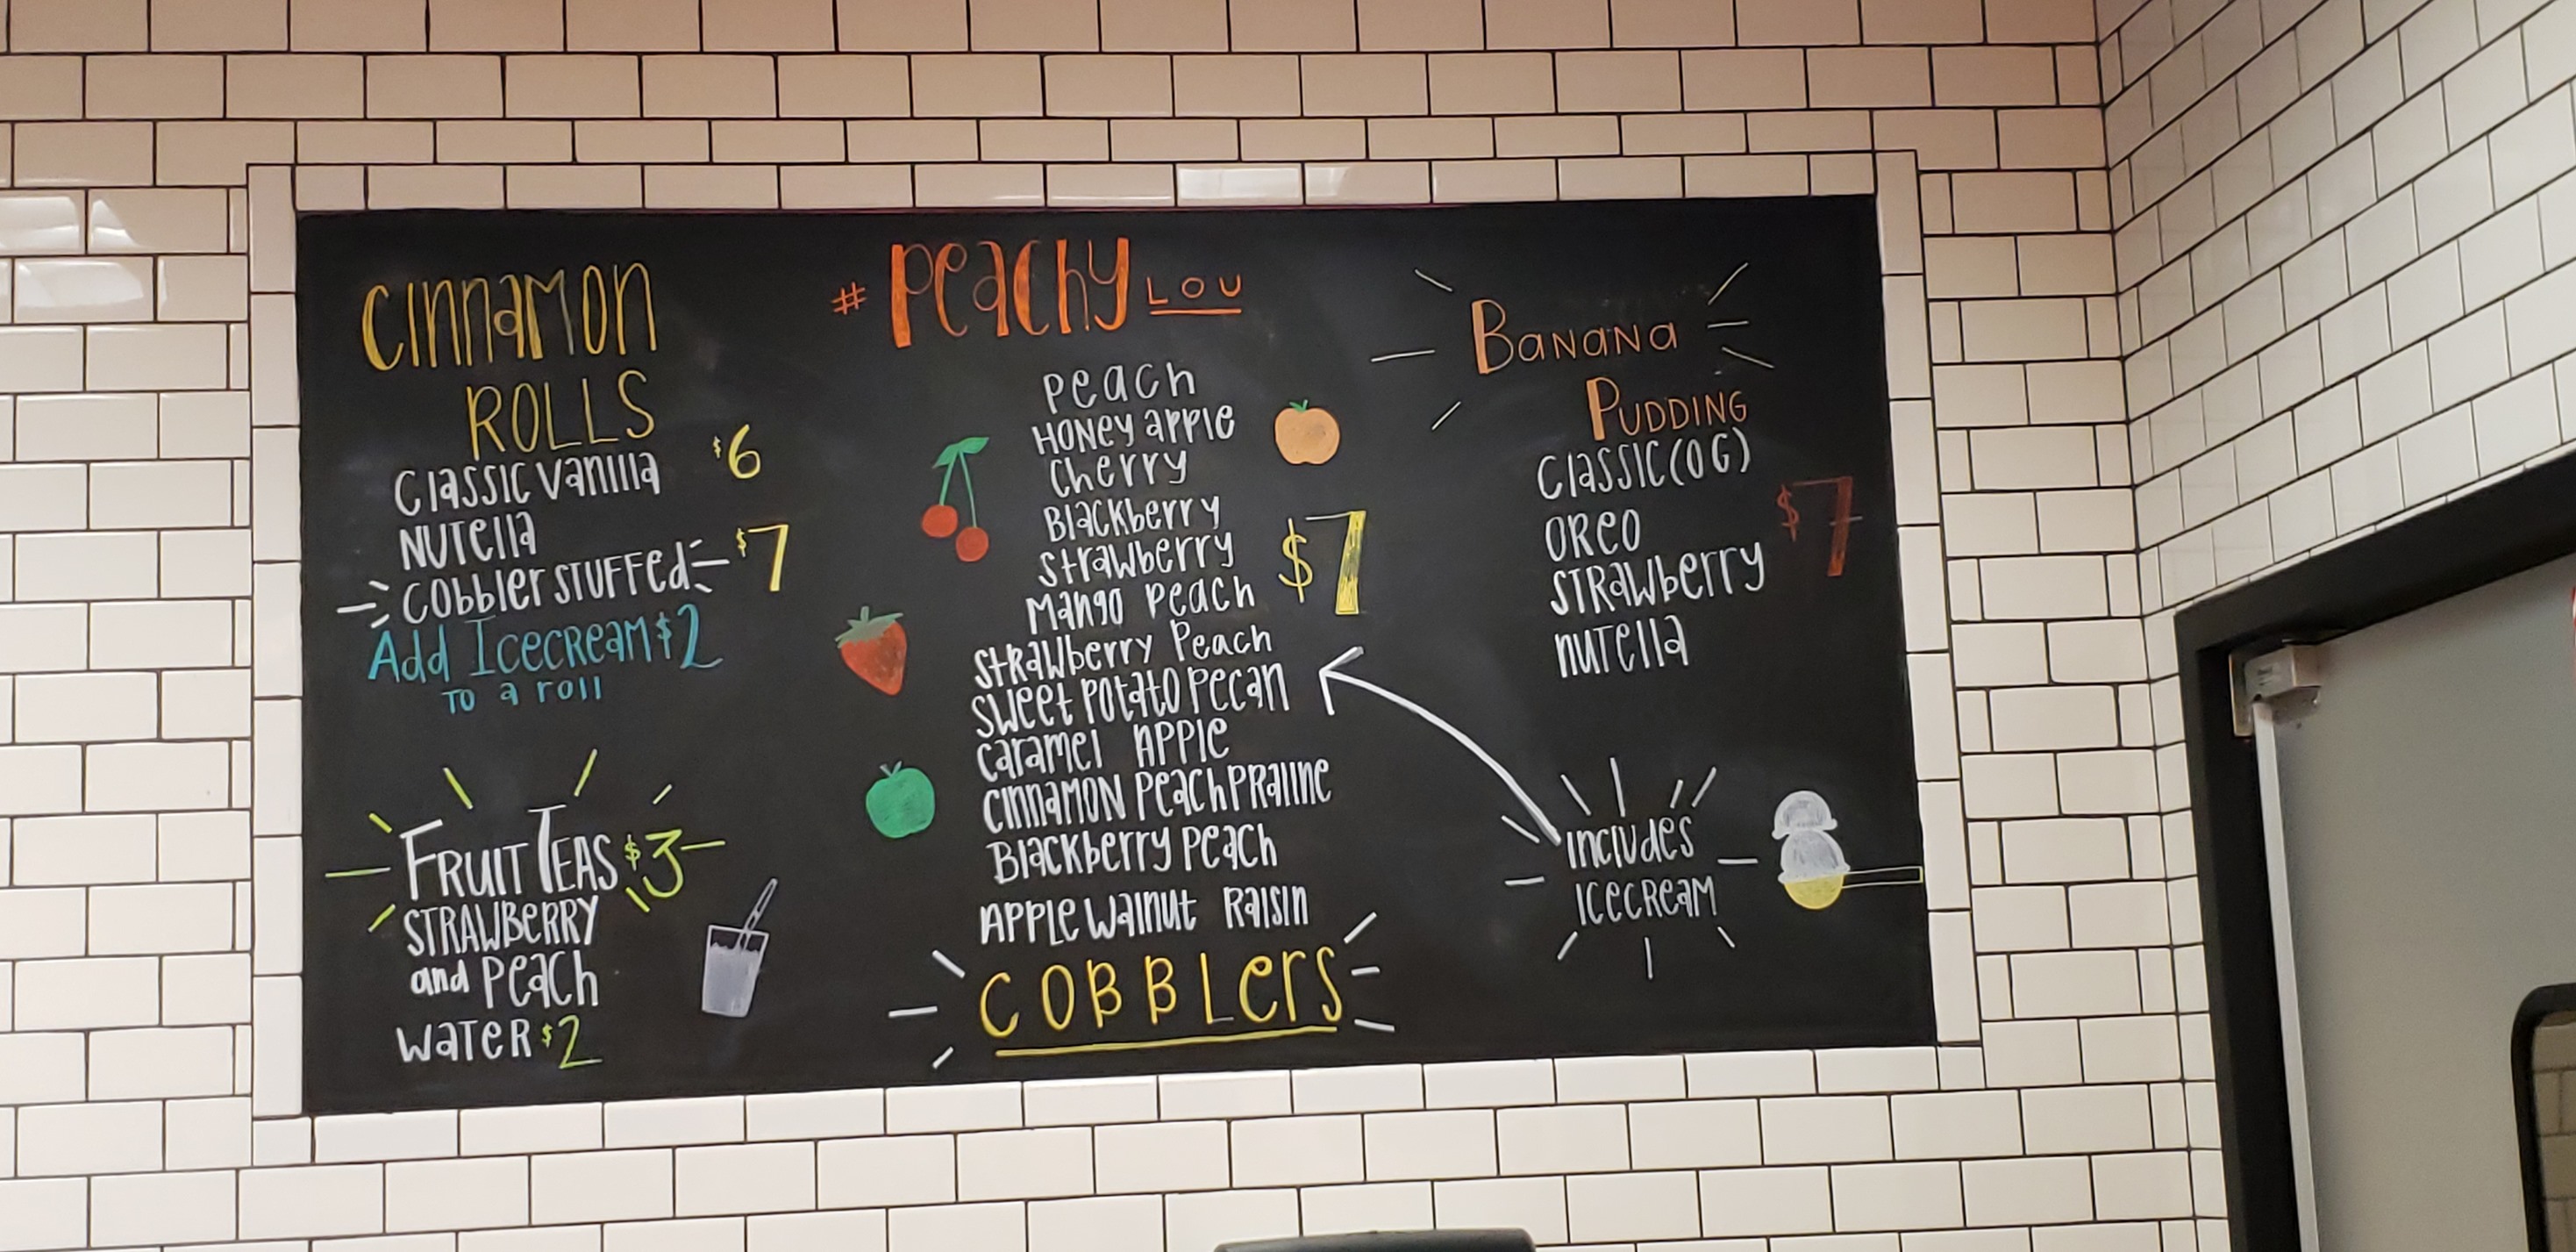 CINNAMON
ROLLS
Classic Vanilla $6
Nutella
Cobbler Stuffed $7
Add Icecream $2
To a roll
Fruit Teas $3
Strawberry
and Peach
Water $2
# Peachy Lou
Peach
Honey apple
Cherry
Blackberry
Strawberry
Mango Peach $7
Strawberry Peach
Sweet Potato Pecan
Caramel Apple
Cinnamon Peach Praline
Blackberry Peach
Apple Walnut Raisin
COBBLers
Banana
Pudding
Classic (OG)
Oreo $7
Strawberry
Nutella
Includes
Icecream